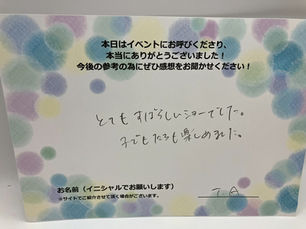 本日はイベントにお呼びくださり、
本当にありがとうございました！
今後の参考の為にぜひ感想をお聞かせください！
とてもすばらしいショーでした。
子どもたちも楽しめました。
お名前（イニシャルでお願いします）
※サイトでご紹介させて頂く場合がございます。
T.A